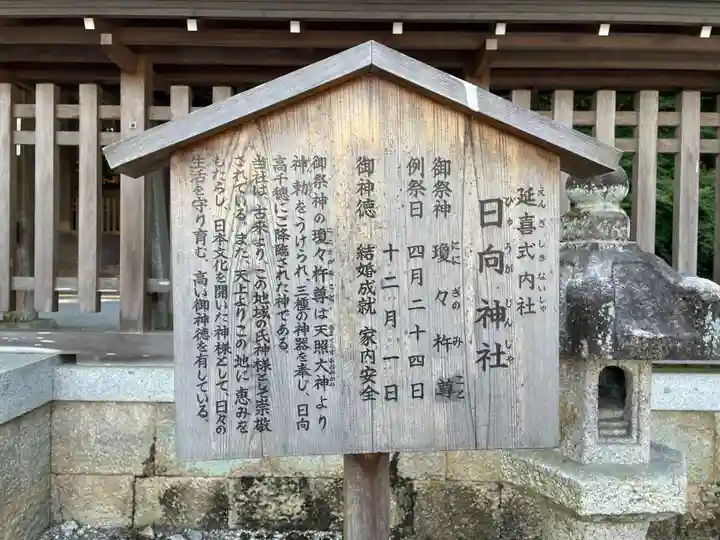 延喜式内社
えんぎしきないしゃ
日向神社
ひゅうがじんじゃ
御祭神 瓊々杵尊
ににぎのみこと
例祭日 四月二十四日
十二月一日
御神徳 結婚成就 家内安全
御祭神の瓊々杵尊は天照大神より
神勅をうけられ、三種の神器を奉じ、日向
高千穂にご降臨された神である。
当社は、古来より、この地域の氏神様として崇敬
されている。また、天上よりこの地に恵みを
もたらし、日本文化を開いた神様として、日々の
生活を守り育む、高い御神徳を有している。